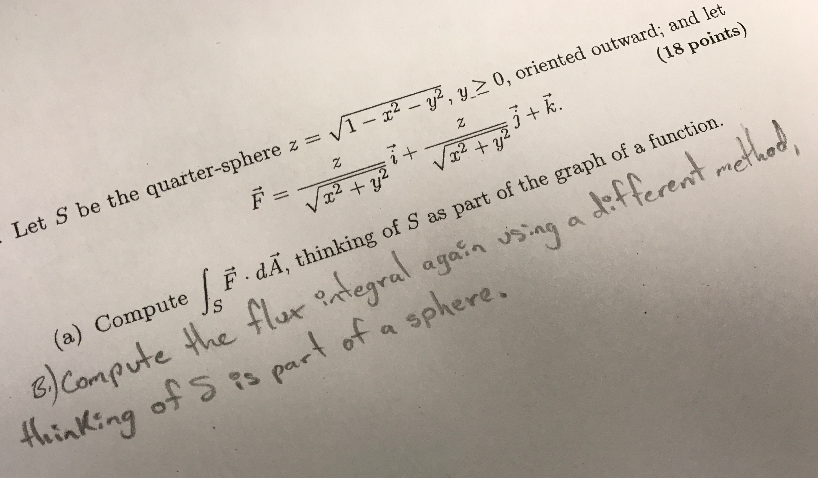 . Let S be the quarter-sphere z = √(1 − x² − y²), y ≥ 0, oriented outward; and let
F⃗ = z/√(x² + y²) i⃗ + z/√(x² + y²) j⃗ + k⃗.
(18 points)
(a) Compute ∫_S F⃗ · dA⃗, thinking of S as part of the graph of a function.
B.) Compute the flux integral again using a different method,
thinking of S is part of a sphere.